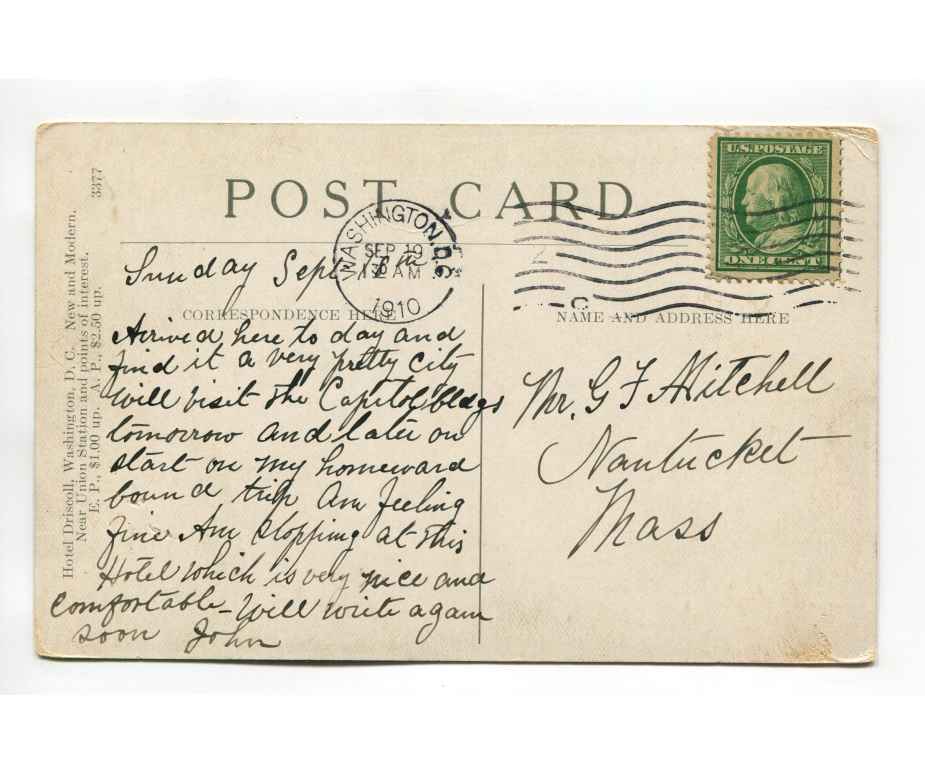 POST CARD
U.S. POSTAGE
ONE CENT
WASHINGTON, D.C.
SEP 19
AM
1910
Sunday Sept
CORRESPONDENCE HERE
Arrived here to day and
find it a very pretty city
Will visit the Capitol bldgs
tomorrow and later on
start on my homeward
bound trip Am feeling
fine Am stopping at this
Hotel which is very nice and
comfortable - Will write again
soon John
NAME AND ADDRESS HERE
Mr. G F Mitchell
Nantucket
Mass
Hotel Driscoll, Washington, D. C. New and Modern.
Near Union Station and points of interest.
E. P., $1.00 up. A. P., $2.50 up.
3377